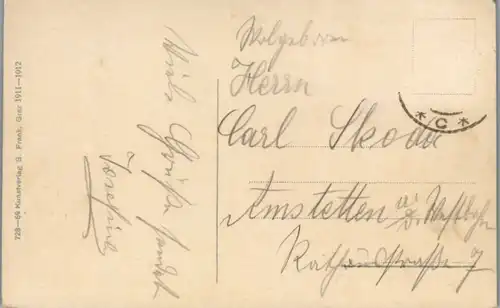 728—69 Kunstverlag G. Frank, Graz 1911—1912
Viele Grüße sendet
Josefine
Wolgeboren
Herrn
Carl Skoda
Amstetten a/
d. Westbahn
Rathausstraße 7
* C *